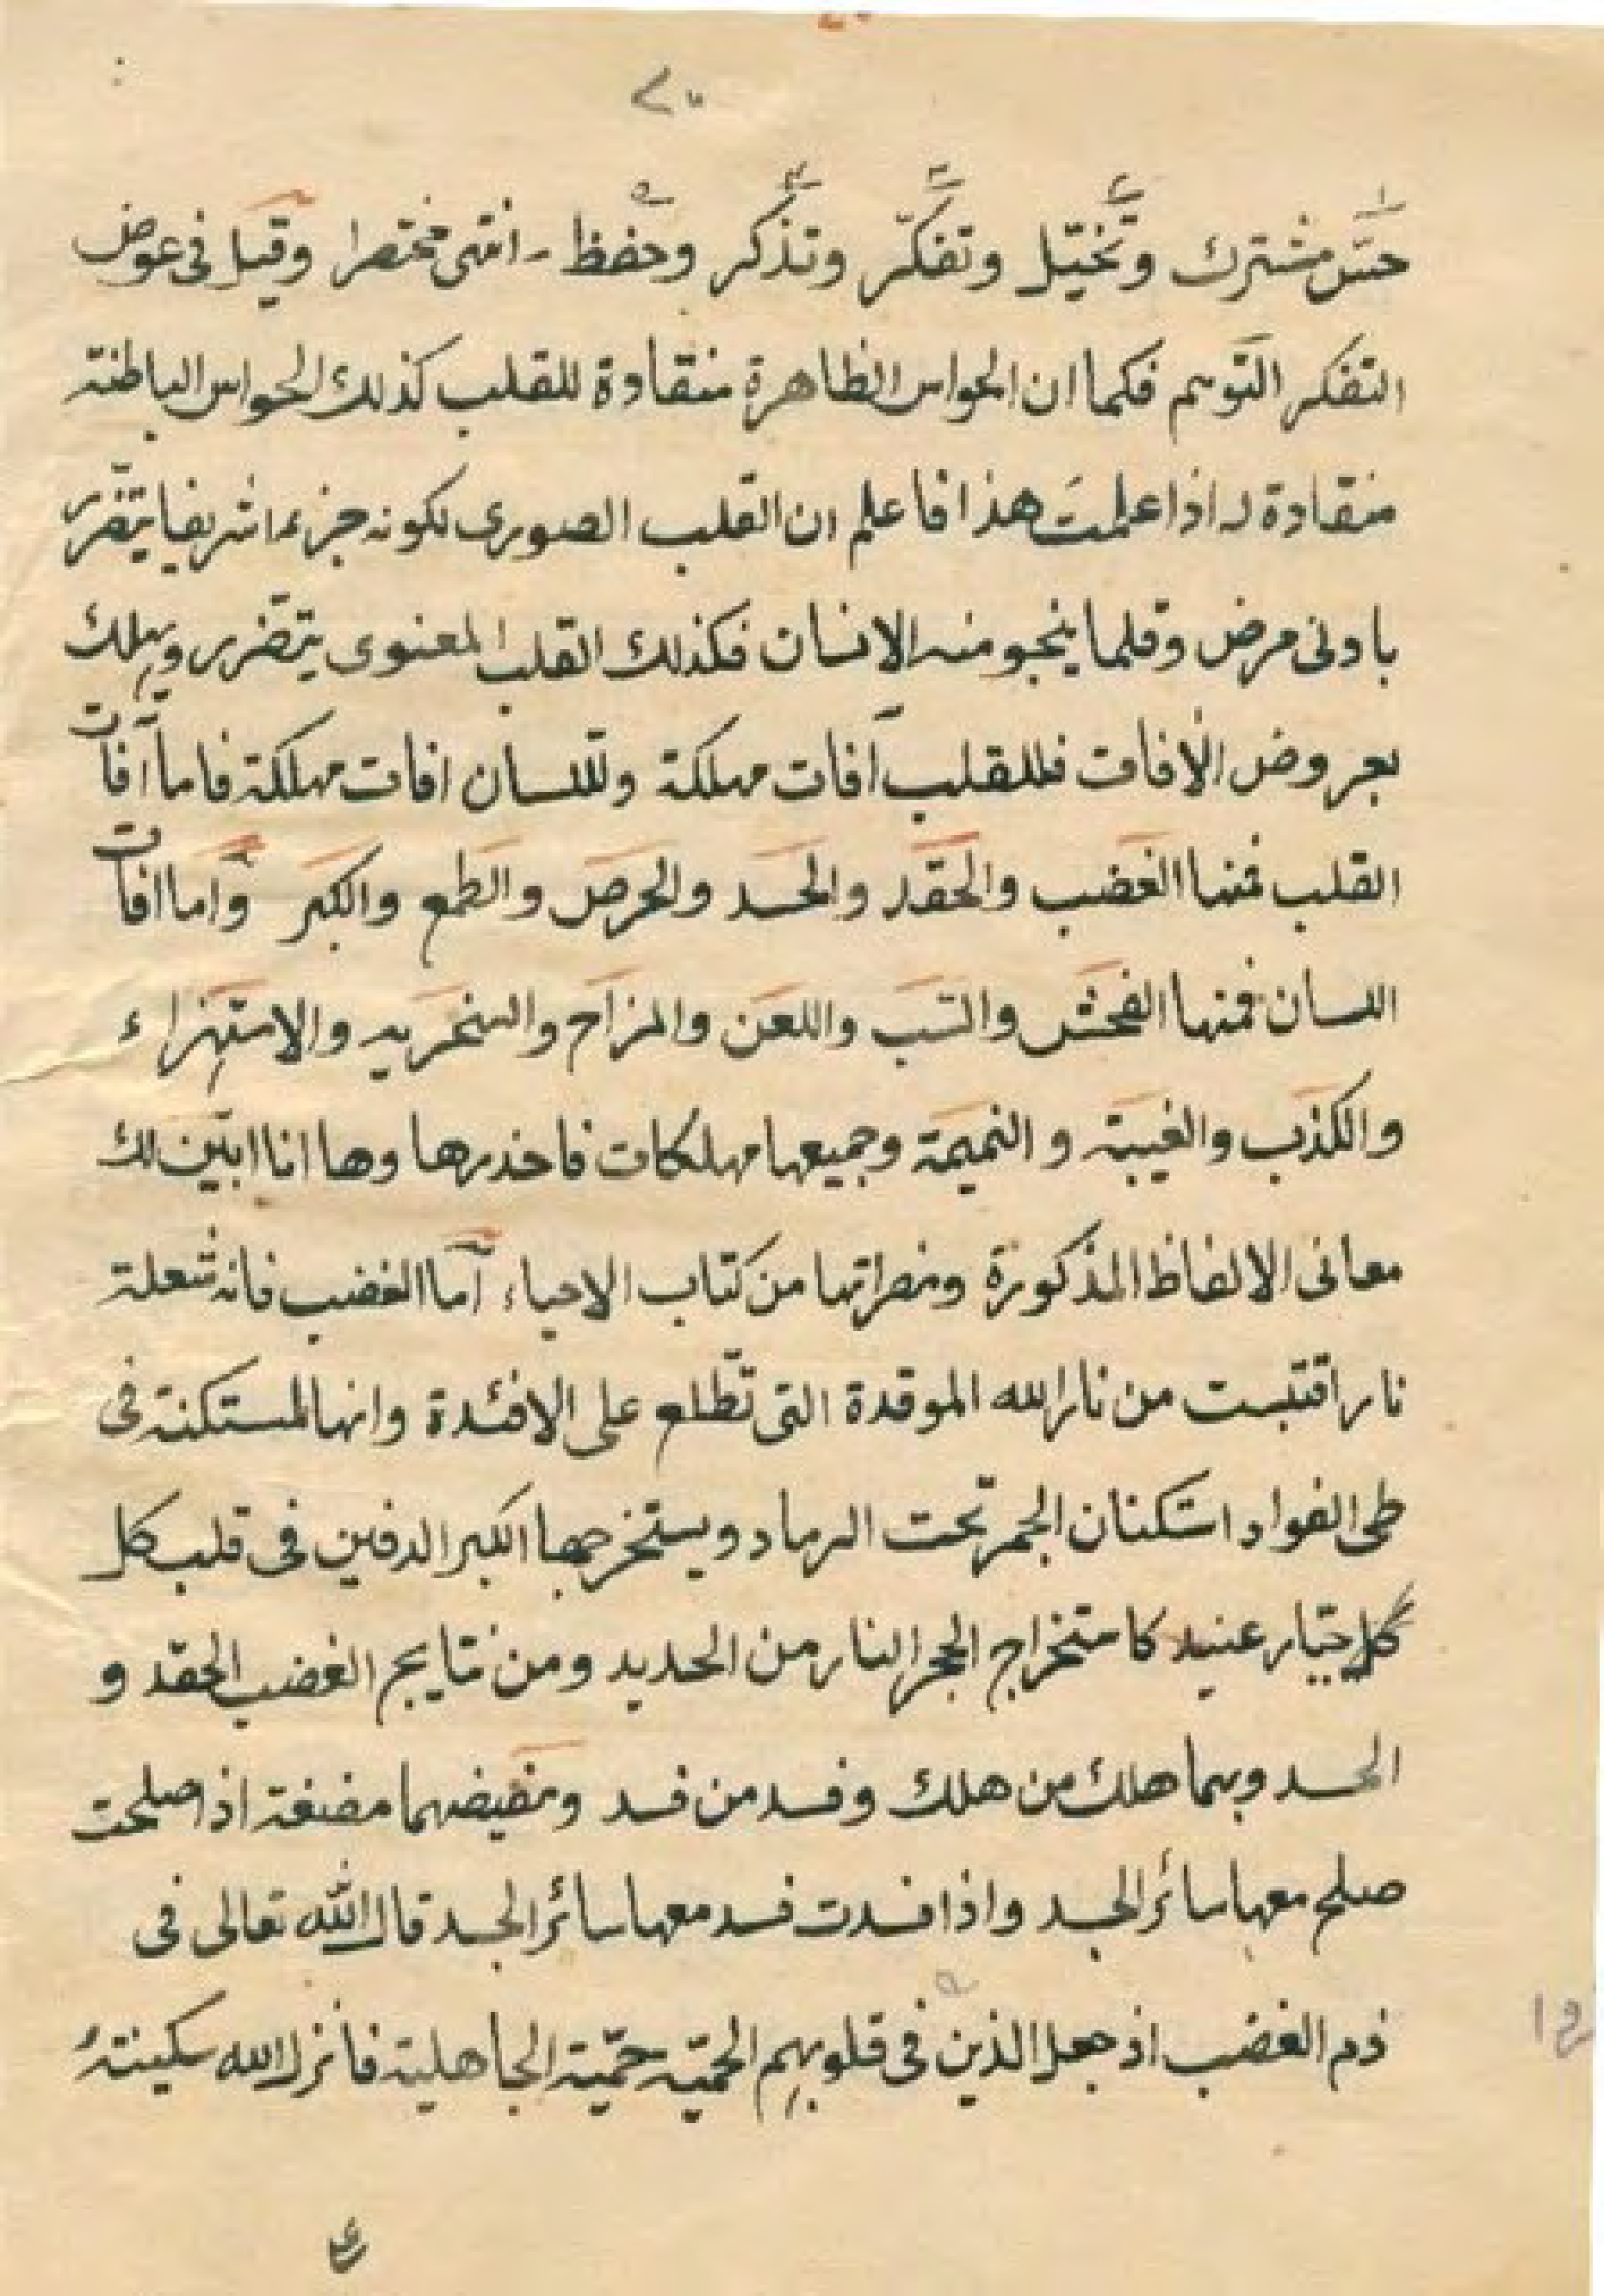 ٢٠
١ ٢ ٣ ٤ ٥
حسّ مشترك وتخيّل وتفكّر وتذكر وحفظ - انتهى مختصرا وقيل فى عوض
التفكر التوسم فكما ان الحواس الظاهرة منقادة للقلب كذلك الحواس الباطنة
منقادة له اذا علمت هذا فاعلم ان القلب الصورى لكونه جزءا شريفا يتضرّر
بادنى مرض وقلما ينجو منه الانسان فكذلك القلب المعنوى يتضرر ويهلك
بعروض الأفات فللقلب آفات مهلكة وللسان افات مهلكة فاما آفات
القلب فمنها الغضب والحقد والحسد والحرص والطمع والكبر واما افات
اللسان فمنها الفحش والسب واللعن والمزاح والسخريه والاستهزاء
والكذب والغيبة و النميمة وجميعها مهلكات فاحذرها وها انا ابيّن لك
معانى الالفاظ المذكورة ومضراتها من كتاب الاحياء أما الغضب فانه شعلة
نار اقتبست من نار الله الموقدة التى تطّلع على الافئدة وانها لمستكنة فى
طى الفواد استكنان الجمر تحت الرماد ويستخرجها الكبر الدفين فى قلب كل
كل جبّار عنيد كاستخراج الحجر النار من الحديد ومن نتايج الغضب الحقد و
الحسد وبهما هلك من هلك وفسد من فسد ومفيضهما مضغة اذا صلحت
صلح معها سائر الجسد واذا فسدت فسد معها سائر الجسد قال الله تعالى فى
ذم الغضب اذ جعل الذين فى قلوبهم الحميّه حميّة الجاهلية فانزل الله سكينتهُ